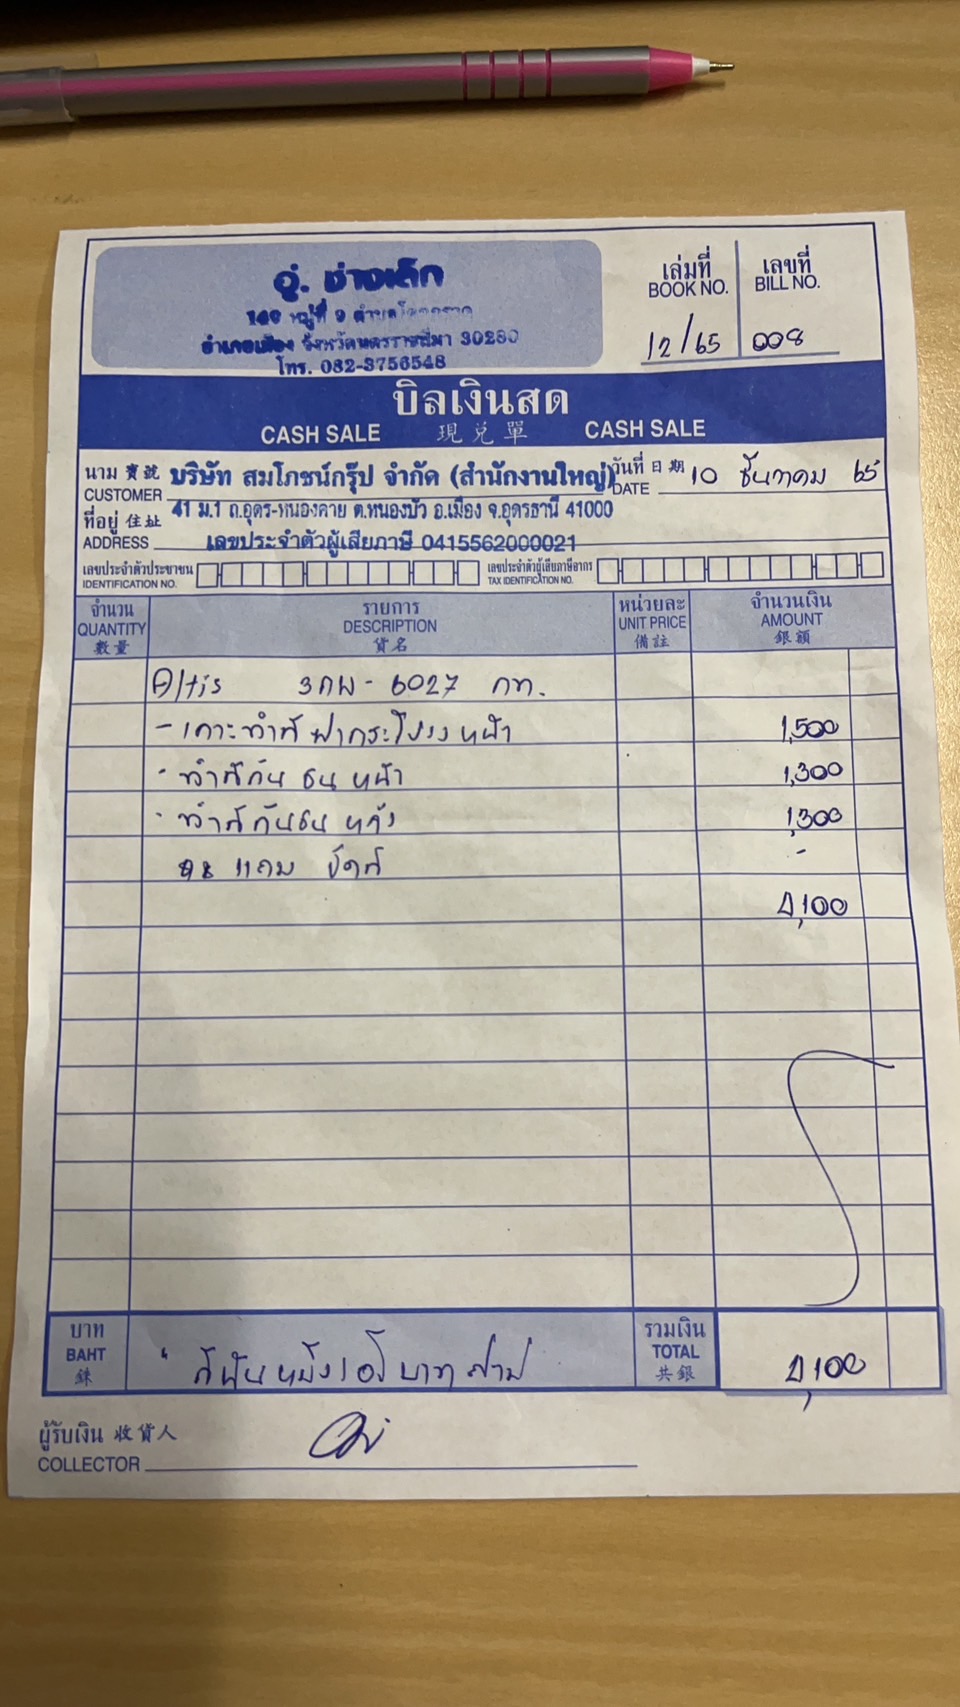 อู่. ช่างเล็ก
149 หมู่ที่ 9 ตำบลโคกกรวด
อำเภอเมือง จังหวัดนครราชสีมา 30280
โทร. 082-3756548
เล่มที่ เลขที่
BOOK NO. BILL NO.
12/65 008
บิลเงินสด
CASH SALE 現兌單 CASH SALE
นาม 寶號 บริษัท สมโภชน์กรุ๊ป จำกัด (สำนักงานใหญ่) วันที่ 日期 10 ธันวาคม 65
CUSTOMER DATE
ที่อยู่ 住址 41 ม.1 ถ.อุดร-หนองคาย ต.หนองบัว อ.เมือง จ.อุดรธานี 41000
ADDRESS เลขประจำตัวผู้เสียภาษี 0415562000021
เลขประจำตัวประชาชน เลขประจำตัวผู้เสียภาษีอากร
IDENTIFICATION NO. TAX IDENTIFICATION NO.
จำนวน รายการ หน่วยละ จำนวนเงิน
QUANTITY DESCRIPTION UNIT PRICE AMOUNT
數量 貨名 備註 銀額
Altis 3กผ-6027 กท.
- เคาะทำสีฝากระโปรงหน้า 1,500
- ทำสีกันชนหน้า 1,300
- ทำสีกันชนหลัง 1,300
แถม ขัดสี -
4,100
บาท รวมเงิน
BAHT สี่พันหนึ่งร้อยบาทถ้วน TOTAL 4,100
銖 共銀
ผู้รับเงิน 收貨人
COLLECTOR